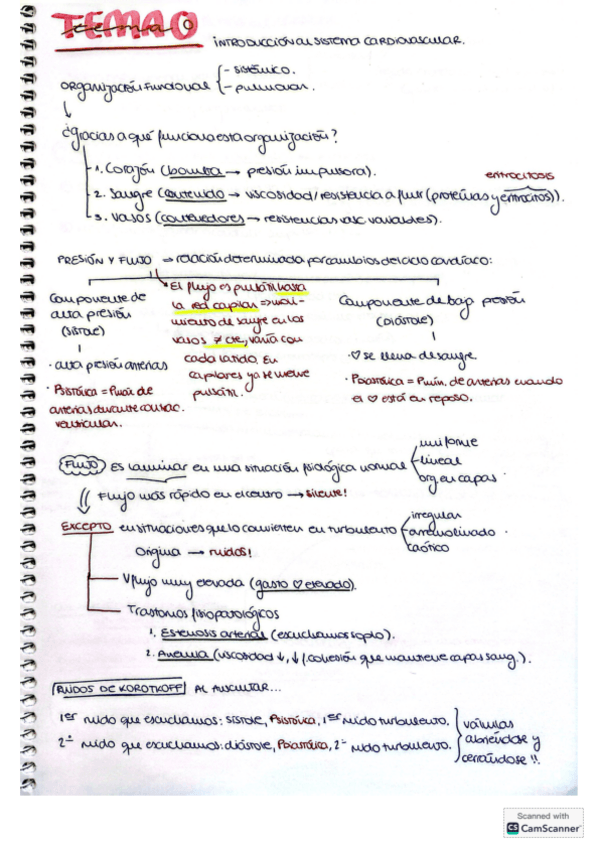 TEMA 0
INTRODUCCIÓN AL SISTEMA CARDIOVASCULAR.
ORGANIZACIÓN FUNCIONAL
- SISTÉMICO.
- pulmonar.
¿Gracias a qué funciona esta organización?
1. Corazón (bomba → presión impulsora).
eritrocitosis
2. Sangre (contenido → viscosidad/resistencia a fluir (proteínas y eritrocitos)).
3. Vasos (contenedores → resistencias vasc variables).
PRESIÓN Y FLUJO → relación determinada por cambios del ciclo cardíaco:
Componente de
alta presión
(SÍSTOLE)
· alta presión arterias
· Psistólica = Pmáx. de
arterias durante contrac.
ventricular.
El flujo es pulsátil hasta
la red capilar ⇒ movi-
miento de sangre en los
vasos ≠ cte, varía con
cada latido. En
capilares ya se vuelve
pulsátil.
Componente de baja presión
(DIÁSTOLE)
· ♡ se llena de sangre.
· Pdiastólica = Pmín. de arterias cuando
el ♡ está en reposo.
FLUJO Es laminar en una situación fisiológica normal
uniforme
lineal
org en capas
Flujo más rápido en el centro → silente!
EXCEPTO en situaciones que lo convierten en turbulento
irregular
arremolinado
caótico
Origina → ruidos!
V flujo muy elevada (gasto ♡ elevado).
Trastornos fisiopatológicos
1. Estenosis arterial (escuchamos soplo).
2. Anemia (viscosidad ↓, ↓ cohesión que mantiene capas sang.).
RUIDOS DE KOROTKOFF AL AUSCULTAR...
1er ruido que escuchamos: sístole, Psistólica, 1er ruido turbulento.
2º ruido que escuchamos: diástole, Pdiastólica, 2º ruido turbulento.
válvulas
abriéndose y
cerrándose !!
Scanned with
CS CamScanner